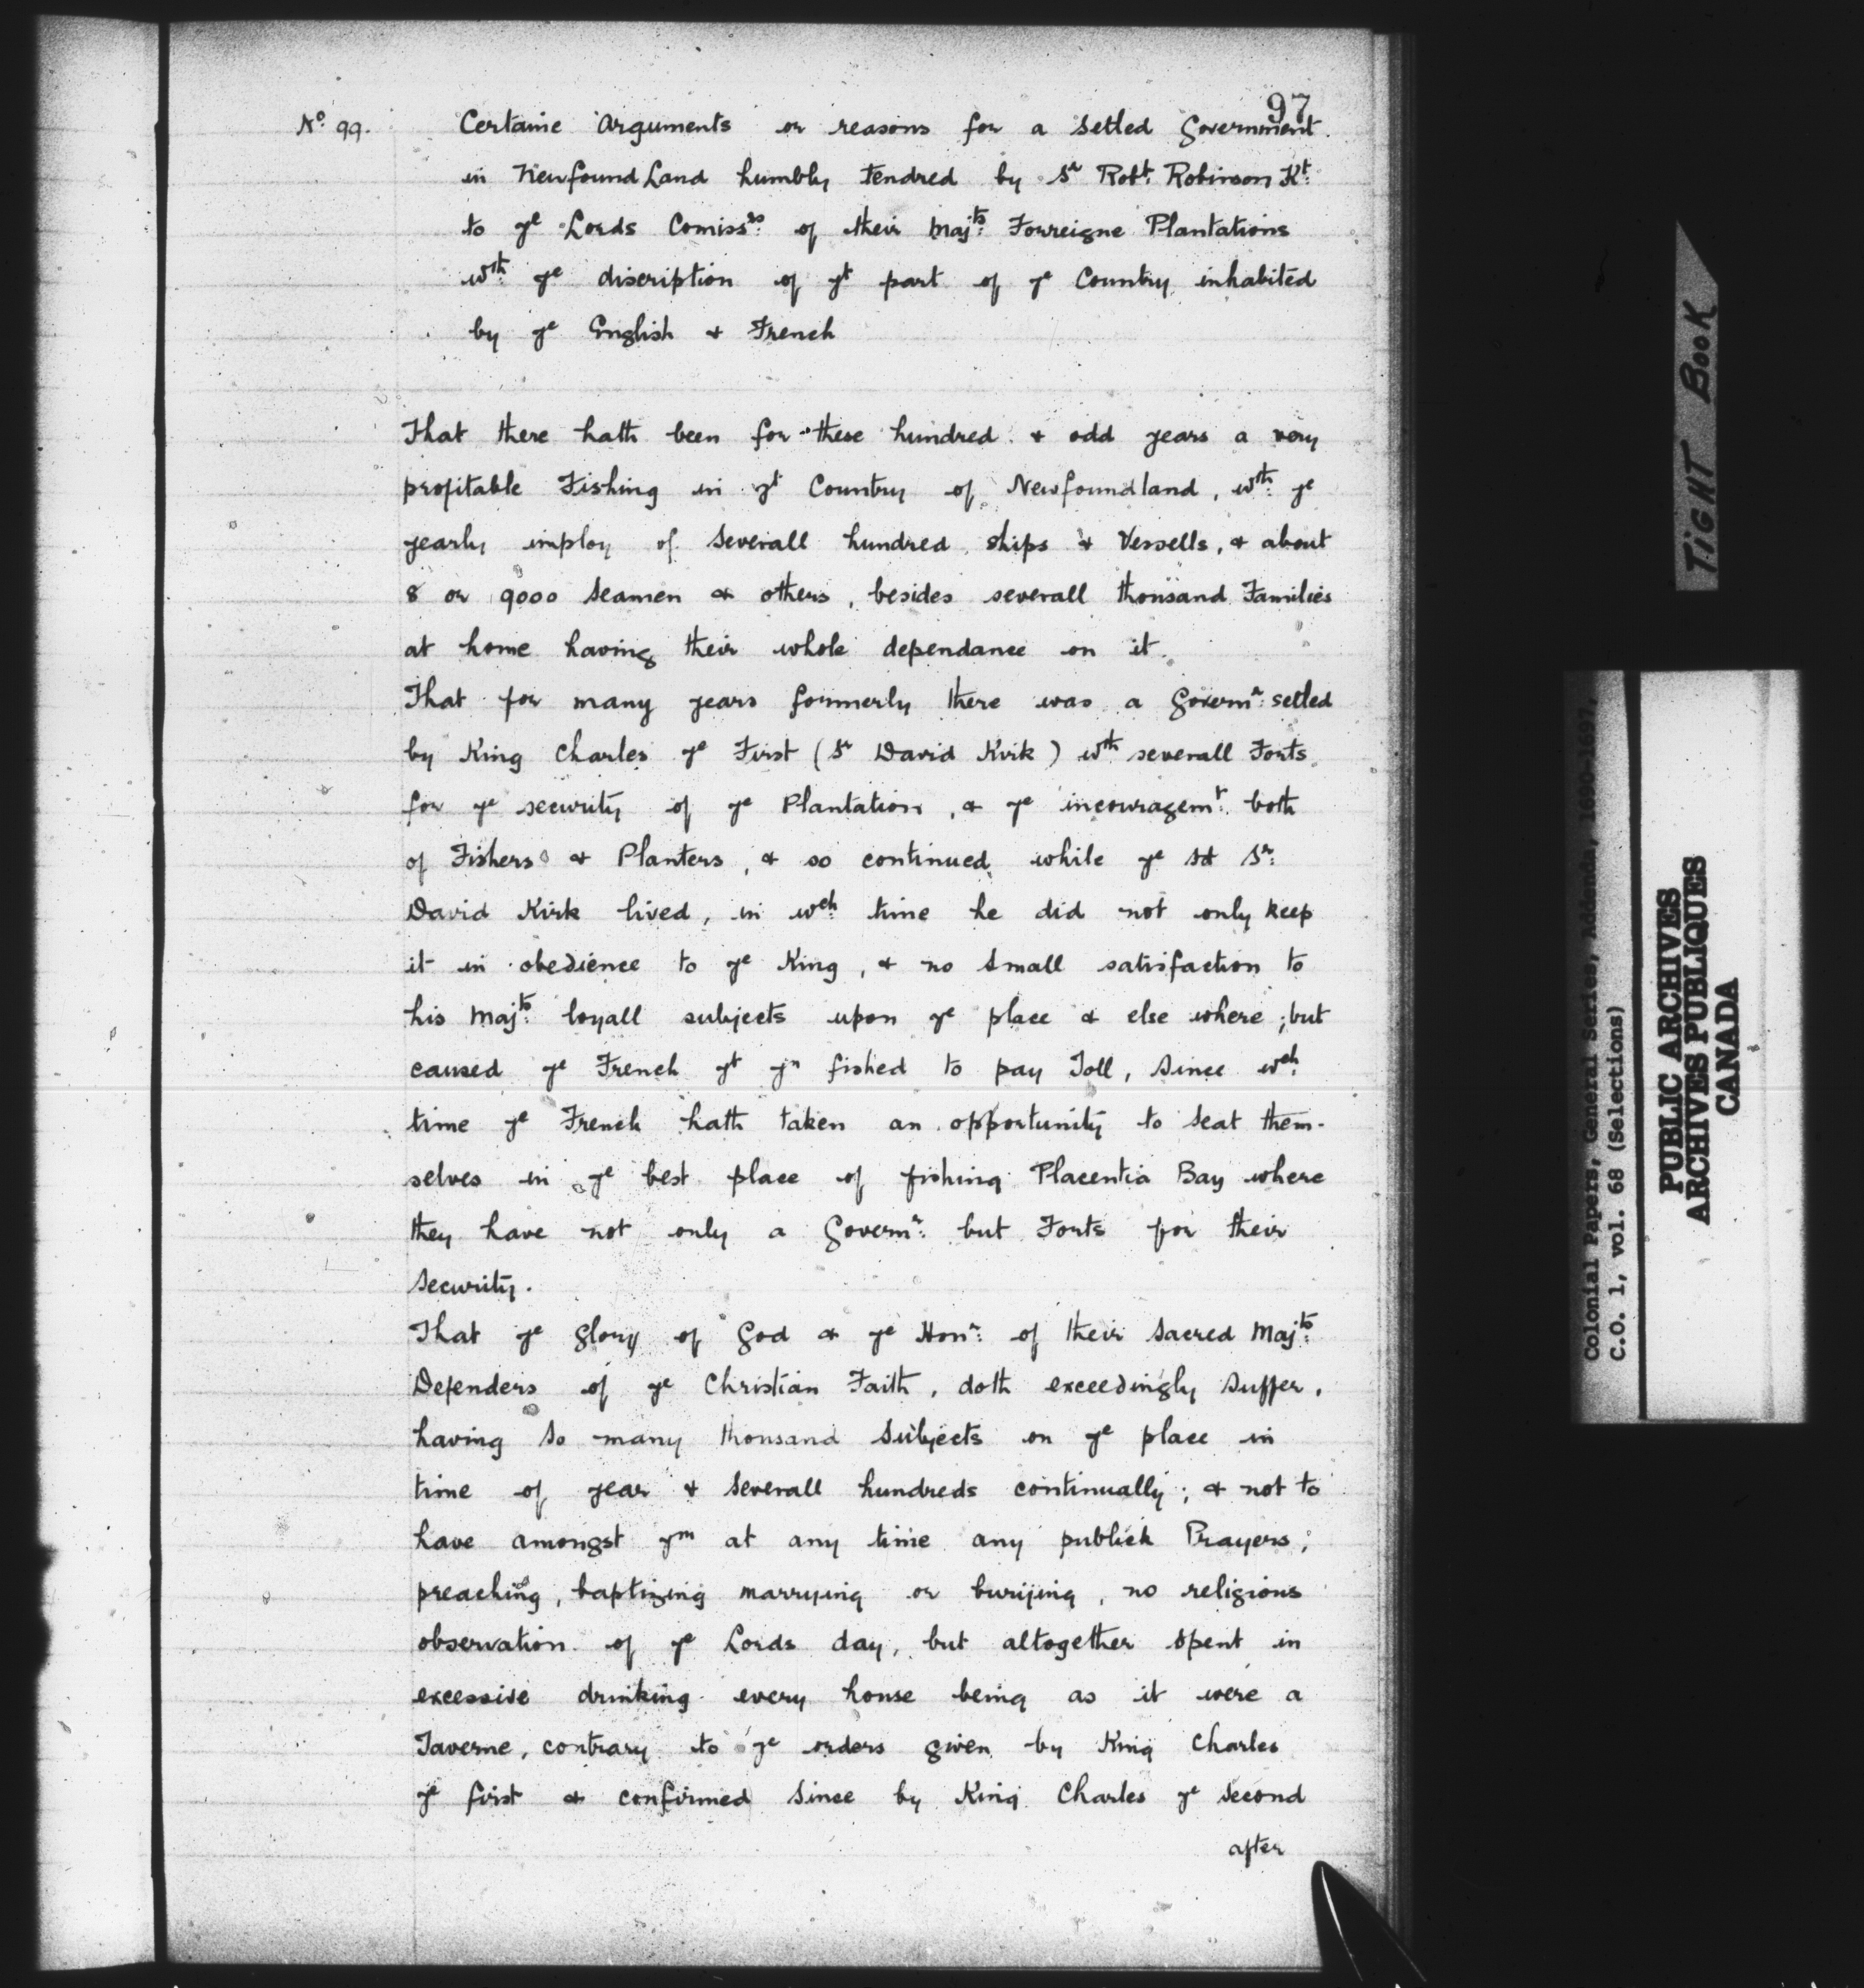 97
No. 99.
Certaine Arguments or reasons for a Setled Government.
in NewfoundLand humbly tendred by Sr Robt. Robinson Kt.
to ye Lords Comissrs. of their Majts. Forreigne Plantations
wth. ye discription of yt part of ye Country inhabited
by ye English & French
That there hath been for these hundred & odd years a very
profitable Fishing in yt Country of Newfoundland, wth. ye
yearly imploy of Severall hundred ships & Vessells, & about
8 or 9000 Seamen & others, besides severall thousand Families
at home having their whole dependance on it.
That for many years formerly there was a Governr. setled
by King Charles ye First (Sr David Kirk) wth severall Forts
for ye security of ye Plantation, & ye incouragemt. both
of Fishers & Planters, & so continued while ye sd Sr.
David Kirk lived, in wch. time he did not only keep
it in obedience to ye King, & no Small satisfaction to
his Majts. loyall subjects upon ye place & else where; but
caused ye French yt yn fished to pay Toll, Since wch.
time ye French hath taken an opportunity to Seat them-
selves in ye best place of fishing Placentia Bay where
they have not only a Governr. but Forts for their
Security.
That ye Glory of God & ye Honr. of their Sacred Majts.
Defenders of ye Christian Faith, doth exceedingly Suffer,
having So many thousand Subjects on ye place in
time of year & Severall hundreds continually; & not to
have amongst ym at any time any publick Prayers,
preaching, baptizing marrying or burijing, no religious
observation of ye Lords day, but altogether Spent in
excessive drinking every house being as it were a
Taverne, contrary to ye orders given by King Charles
ye first & confirmed Since by King Charles ye Second
after
TIGHT BOOK
Colonial Papers, General Series, Addenda, 1690-1697,
C.O. 1, vol. 68 (Selections)
PUBLIC ARCHIVES
ARCHIVES PUBLIQUES
CANADA